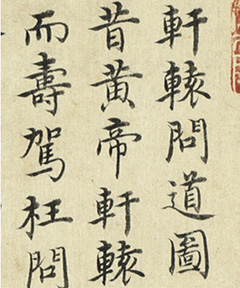 軒轅問道圖
昔黃帝軒轅
而壽駕枉問